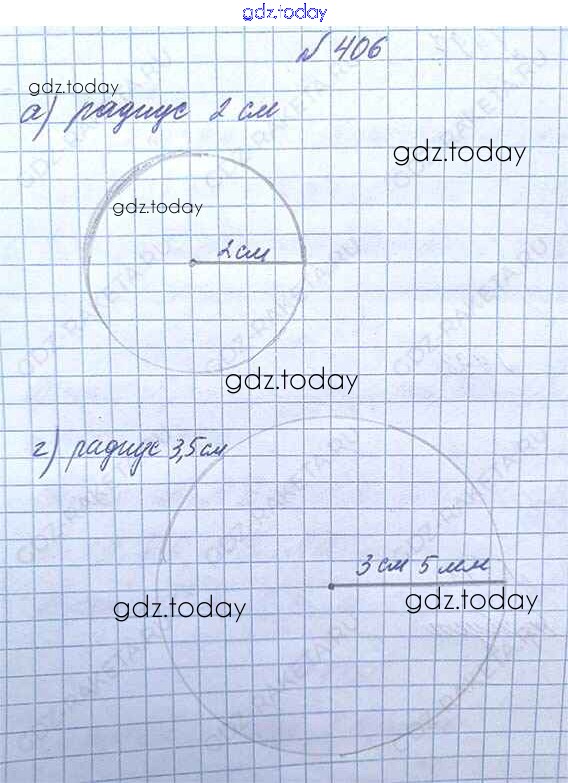 gdz.today
№ 406
gdz.today
а) радиус 2 см
gdz.today
gdz.today
2 см
gdz.today
г) радиус 3,5 см
3 см 5 мм
gdz.today
gdz.today
GDZ-RAKETA.RU